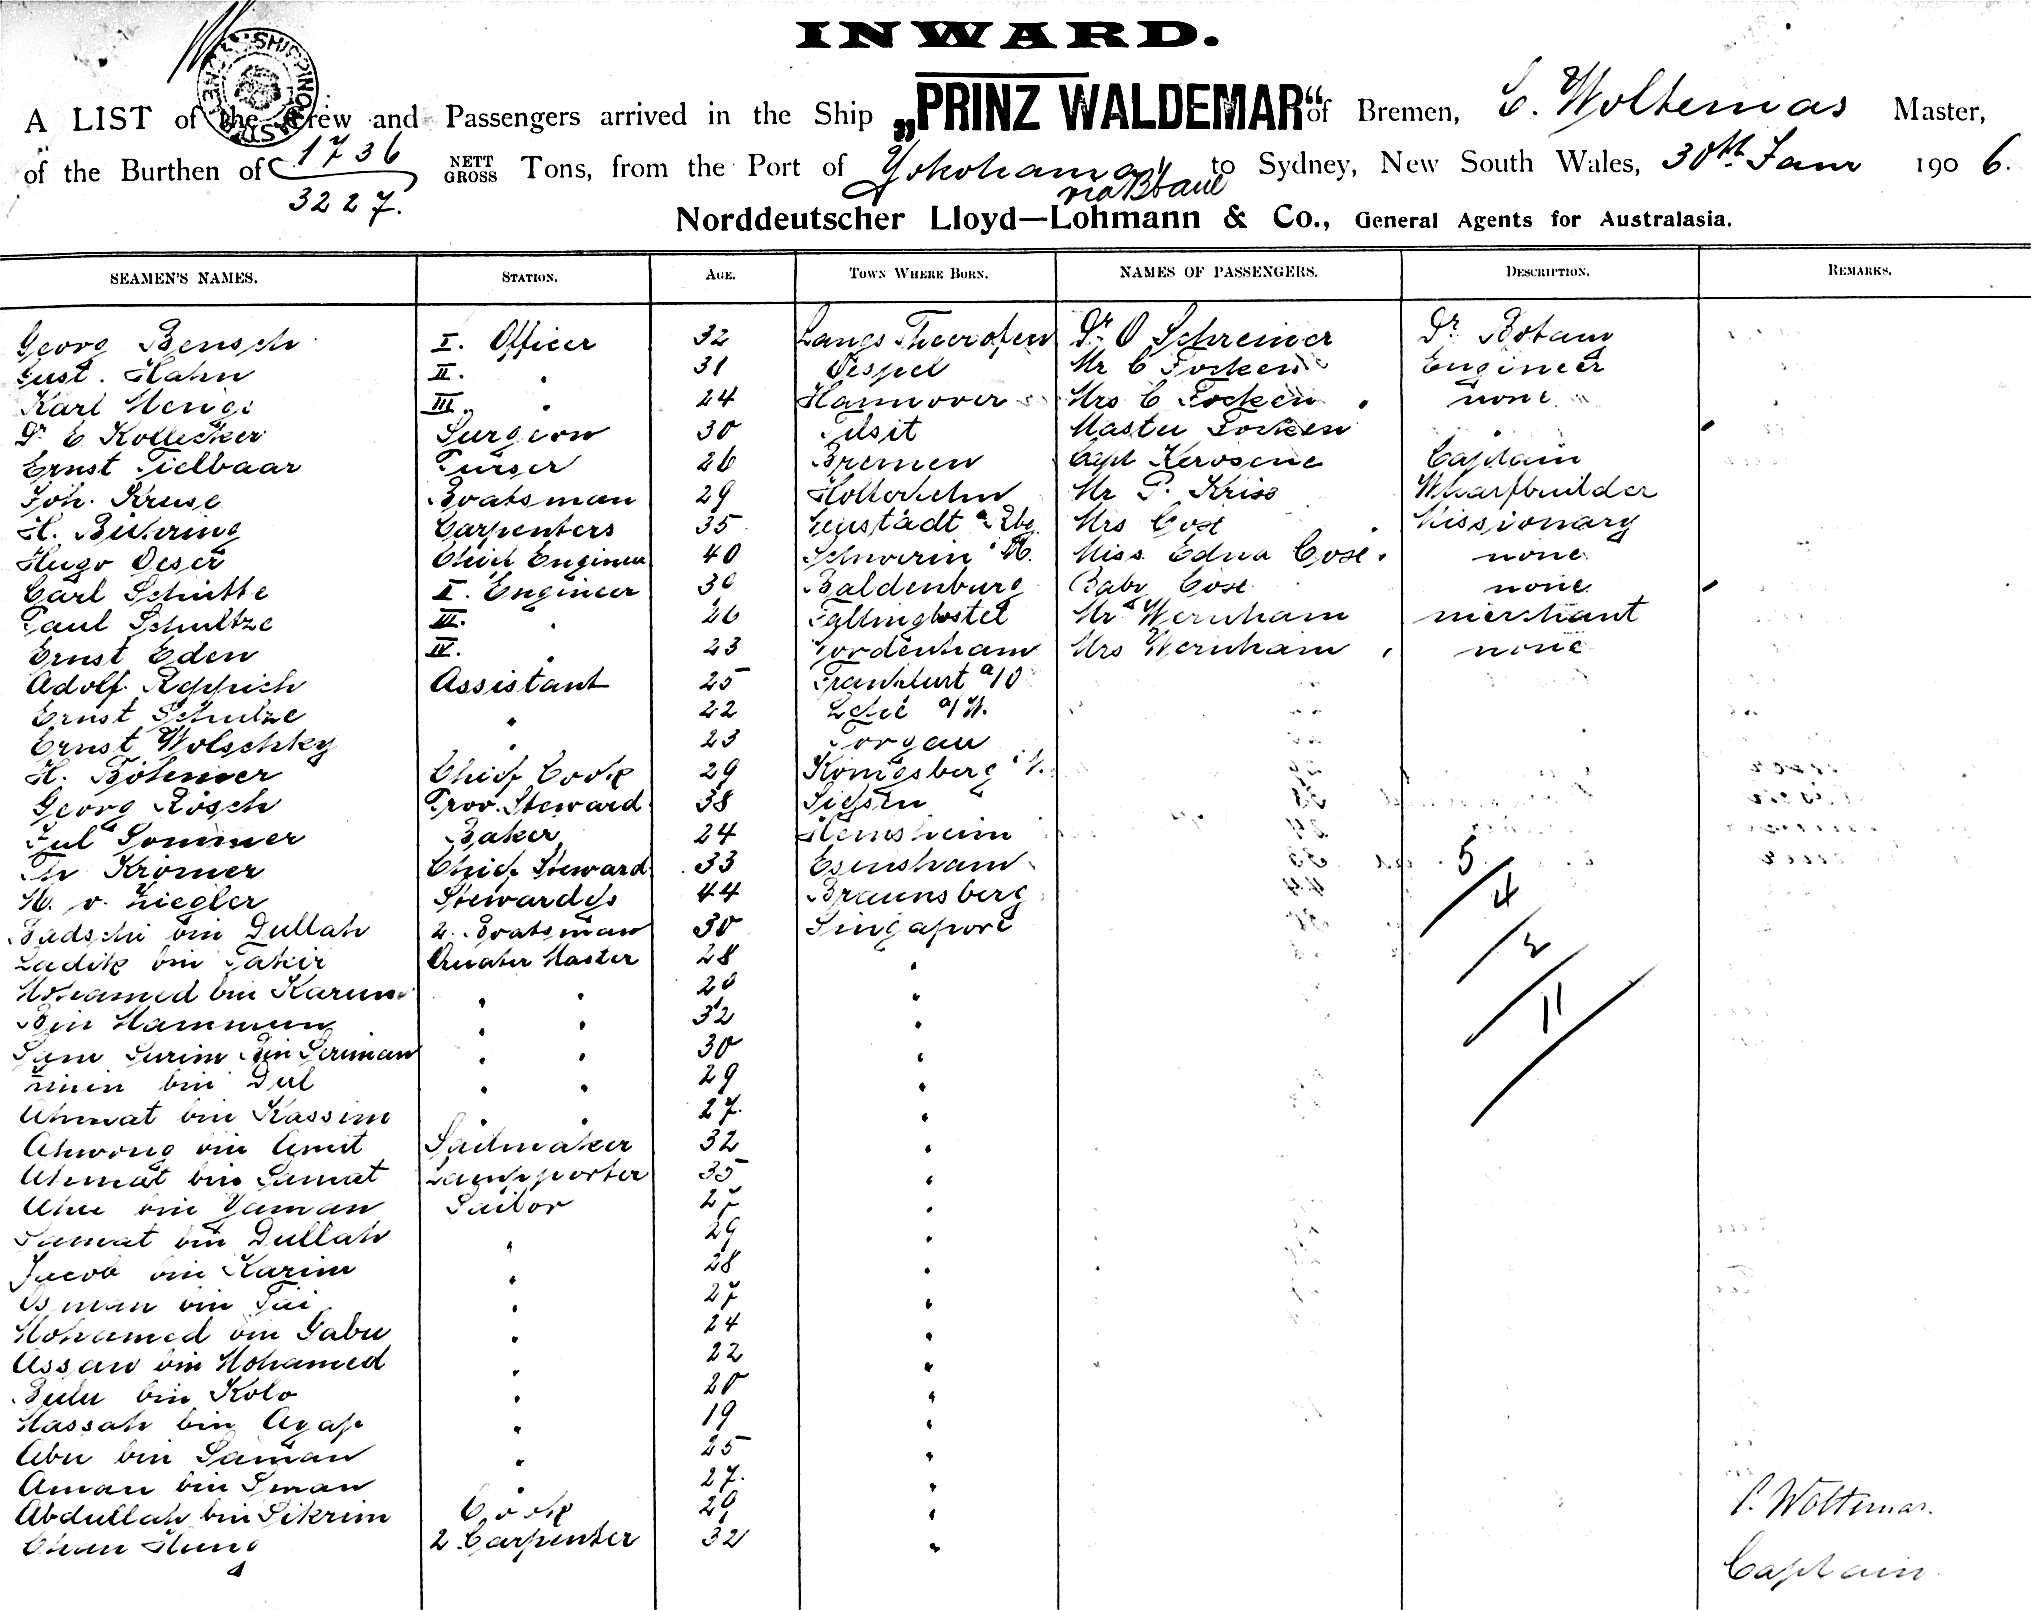 INWARD.
A LIST of the Crew and Passengers arrived in the Ship „PRINZ WALDEMAR“ of Bremen, C. Woltemas Master,
of the Burthen of 1736 NETT GROSS Tons, from the Port of Yokohama to Sydney, New South Wales, 30th Janr 1906.
3227. via
Norddeutscher Lloyd—Lohmann & Co., General Agents for Australasia.
SEAMEN'S NAMES. STATION. AGE. TOWN WHERE BORN. NAMES OF PASSENGERS. DESCRIPTION. REMARKS.
Georg Bensch I. Officer 32 Dr O Schreiner Dr Botany
Gust. Hahn II. " 31 Mr C Focken Engineer
Karl Menge III. " 24 Hannover Mrs C Focken none
Dr E Kollecker Surgeon 30 Tilsit Master Focken "
Ernst Tielbaar Purser 26 Bremen Capt Kerosene Captain
Joh. Kruse Boatsman 29 Mr P. Kriss Wharfbuilder
H. Bühring Carpenters 35 Mrs Cose Missionary
Hugo Oeser Chief Engineer 40 Schwerin i M. Miss Edna Cose none
Carl Schütte I. Engineer 30 Baldenburg Baby Cose none
Paul Schultze III. " 26 Fallingbostel Mr Wernham merchant
Ernst Eden IV. " 23 Nordenham Mrs Wernham none
Adolf Reppich Assistant 25 Frankfurt a/O
Ernst Schulze " 22 a/H.
Ernst Wolschky " 23 Torgau
H. Böhmer Chief Cook 29 Königsberg
Georg Rösch Prov. Steward 38
Jul Sommer Baker 24
Th Krömer Chief Steward 33 Esensham 5
M. v. Ziegler Stewardess 44 Braunsberg 4
Badschi bin Dullah 2. Boatsman 30 Singapore 2
Ladik bin Takir Quater Master 28 "
Mohamed bin Karim " " 20 " 11
Bin Mammun " " 32 "
Sam Surim Bin Seriman " " 30 "
bin Dul " " 29 "
Ahmat bin Kassim " " 27 "
Ahwong bin Amit Sailmaker 32 "
Ahmat bin Samat Lampporter 35 "
bin Yaman Sailor 27 "
Samat bin Dullah " 29 "
Jacob bin Karim " 28 "
Osman bin " 27 "
Mohamed bin Gabu " 24 "
Assan bin Mohamed " 22 "
Bulu bin Kolo " 20 "
Hassan bin Ayap " 19 "
Abu bin Saman " 25 "
Aman bin Sman " 27 "
Abdullah bin Sikrim Cook 29 " C. Woltemas.
Chan Hung 2 Carpenter 32 " Captain